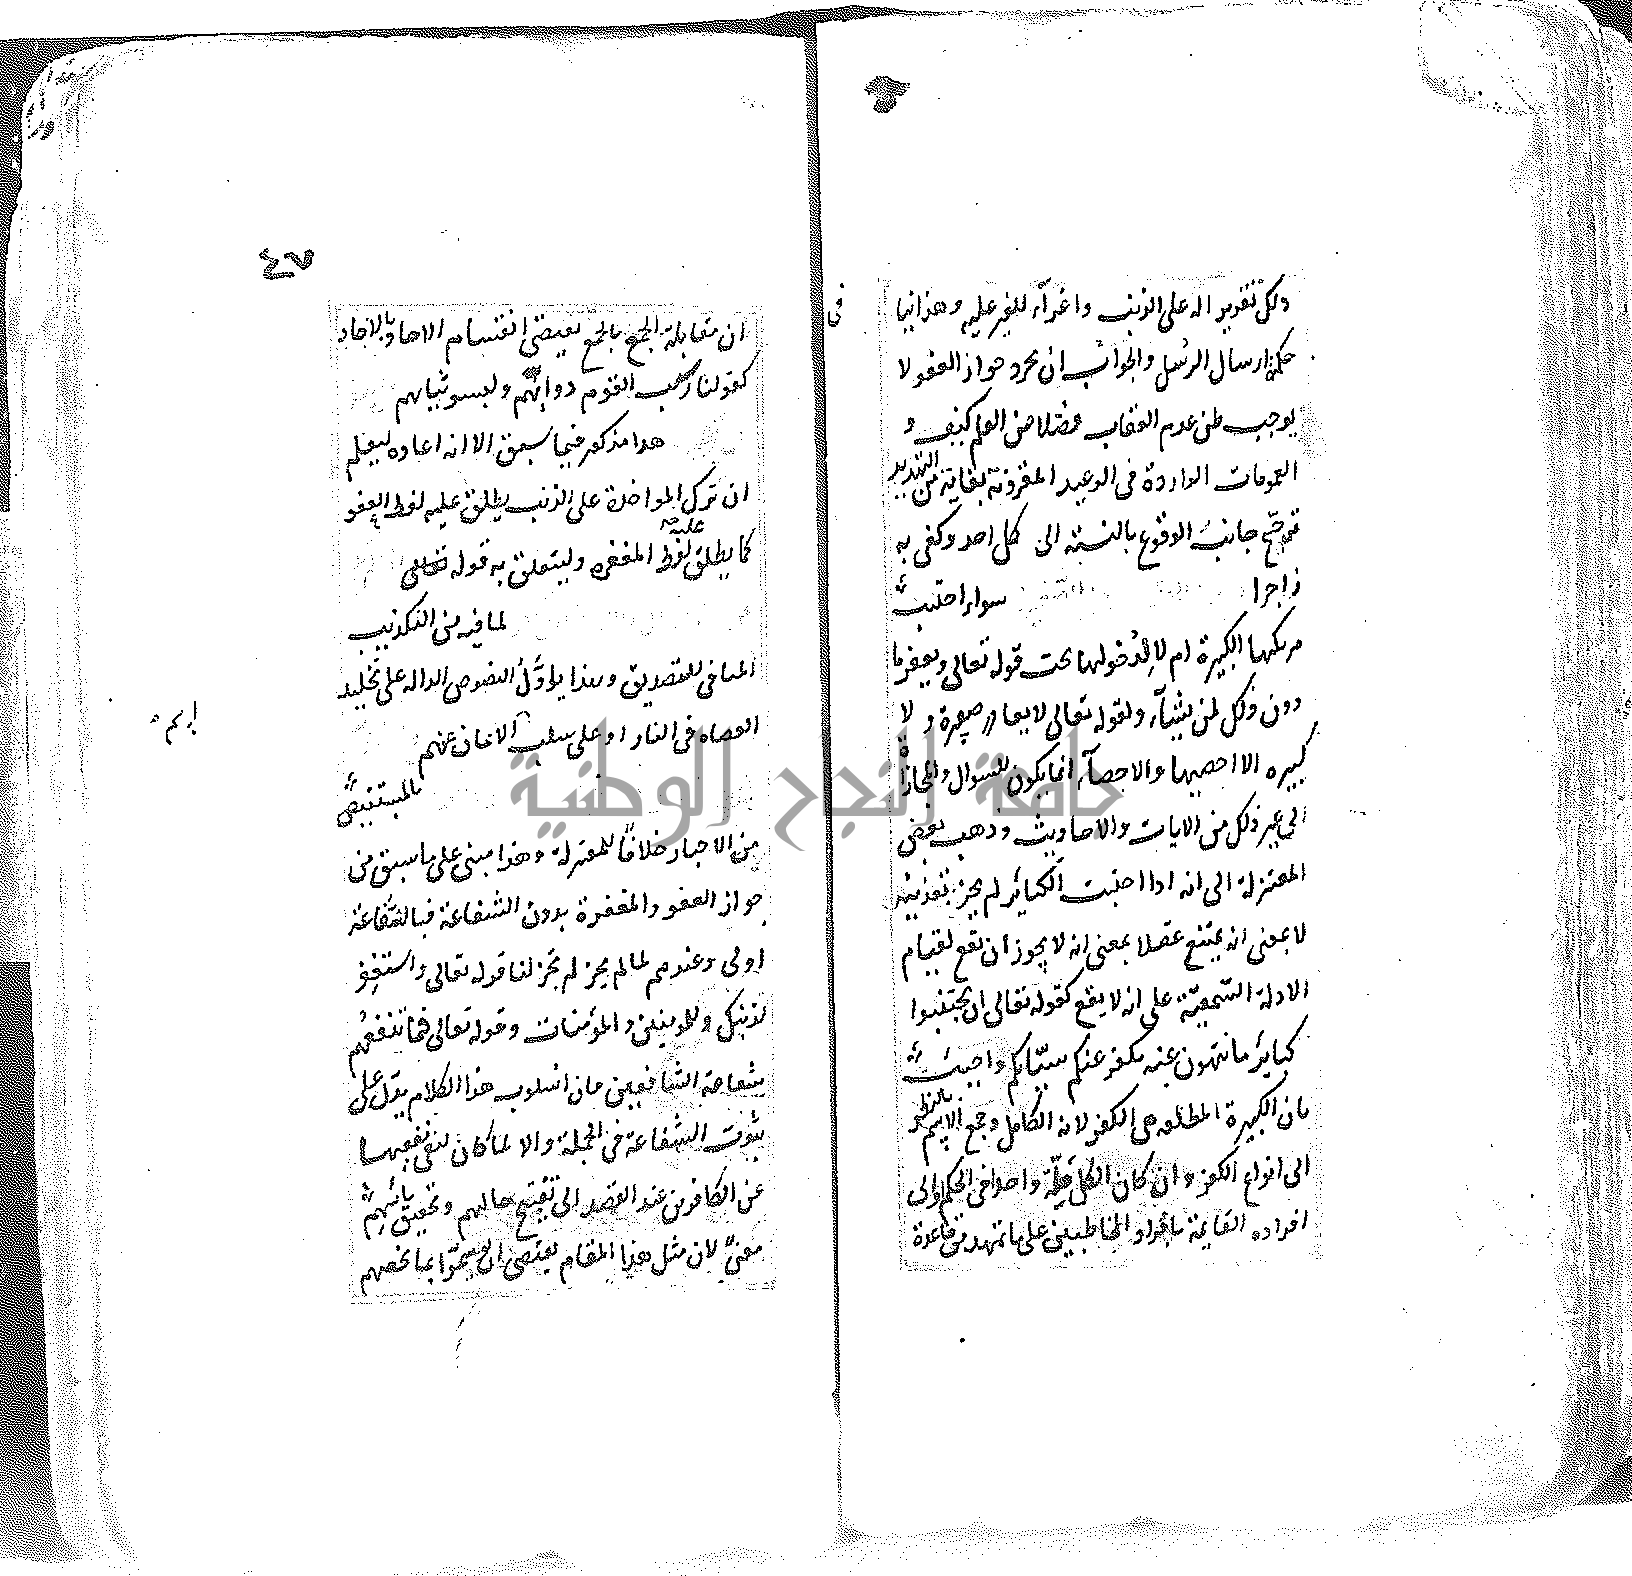 في
ذلك تقرير اله على الذنب واغرآء للغير عليه وهذا ينا
حكمة ارسال الرسل والجواب ان مجرد جواز العفو لا
يوجب ظن عدم العقاب فضلا من العلم كيف و
العمومات الواردة في الوعيد المقرونة بغاية من التهديد
ترجح جانب الوقوع بالنسبة الى كل احد وكفى به
زاجرا سواء اجتنب
مرتكبها الكبيرة ام لا لدخولها تحت قوله تعالى ويغفر ما
دون ذلك لمن يشآء ولقوله تعالى لا يغادر صغيرة و لا
كبيره الا احصيها والاحصآء انما يكون للسوال والمجازاة
الى غير ذلك من الايات والاحاديث وذهب بعض
المعتزلة الى انه اذا اجتنب الكبائر لم يجز تعذيبه
لا بمعنى انه يمتنع عقلا بمعنى انه لا يجوز ان يقع لقيام
الادلة السمعية على انه لا يقع كقوله تعالى ان تجتنبوا
كبائر ما تنهون عنه نكفر عنكم سيئاتكم واجيب
بان الكبيرة المطلقه هي الكفر لانه الكامل وجمع الاسم بالنظر
الى انواع الكفر وان كان الكل ملة واحدا في الحكم او الى
افراده القايمة بافراد المخاطبين على ما تمهد من قاعدة
٤٧
ان مقابلة الجمع بالجمع يقتضي انقسام الاحاد بالاحاد
كقولنا ركب القوم دوابهم ولبسو ثيابهم
هذا مذكور فيما سبق الا انه اعاده ليعلم
ان ترك المواخذة على الذنب يطلق عليه لفظ العفو
كما يطلق عليه لفظ المغفره وليتعلق به قوله
لما فيه من التكذيب
المنافي للتصديق وبهذا ياول النصوص الداله على تخليد
العصاه في النار او على سلب الايمان عنهم
بالمستفيض
من الاخبار خلافا للمعتزلة وهذا مبنى على ما سبق من
جواز العفو والمغفرة بدون الشفاعة فبالشفاعة
اولى وعندهم لما لم يجز لم تجز لنا قوله تعالى واستغفر
لذنبك وللمومنين والمؤمنات وقوله تعالى فما تنفعهم
شفاعة الشافعين فان اسلوب هذا الكلام يدل على
ثبوت الشفاعة في الجملة والا لما كان لنفي نفعها
عن الكافرين عند القصد الى تقبيح حالهم وتحقيق بائسهم
معنى لان مثل هذا المقام يقتضى ان يسموا بما يخصهم
جامعة النجاح الوطنية